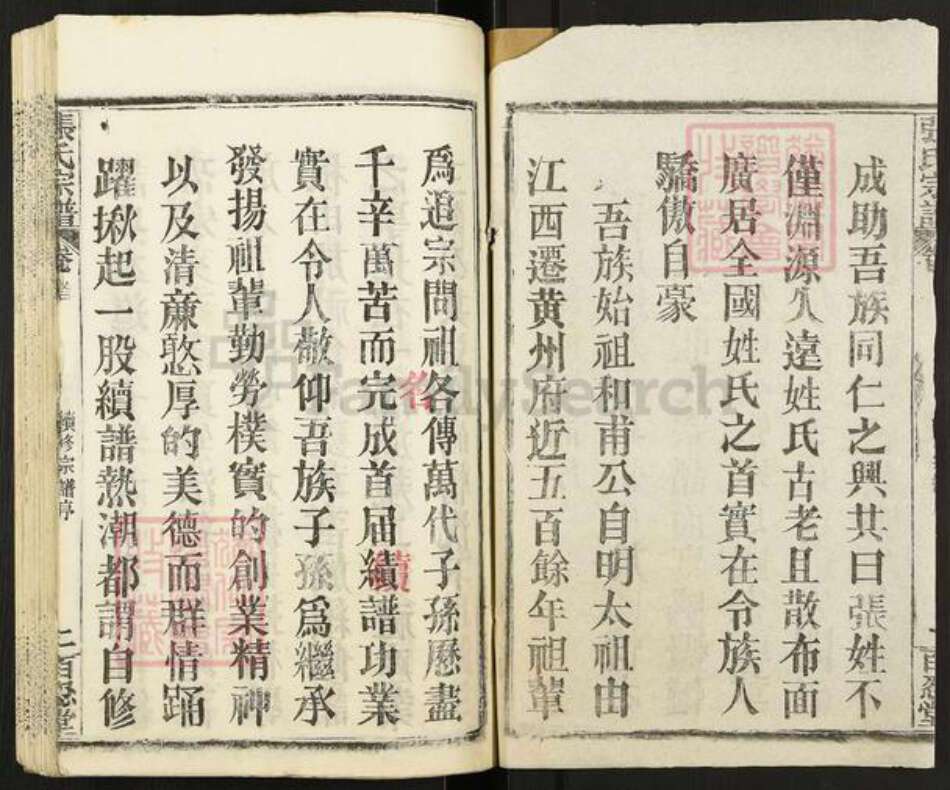 成助吾族同仁之興其曰張姓不
僅淵源久遠姓氏古老且散布面
廣居全國姓氏之首實在令族人
驕傲自豪
吾族始祖和甫公自明太祖由
江西遷黄州府近五百餘年祖輩
張氏宗譜
百忍堂
爲追宗問祖各傳萬代子孫歷盡
名
千辛萬苦而完成首屆續譜功業
續
實在令人敬仰吾族子孫爲繼承
發揚祖輩勤勞樸實的創業精神
以及清亷憨厚的美德而群情踊
躍揪起一股續譜熱潮都謂自修
張氏宗譜
續修宗譜序
二百忍堂
FamilySearch